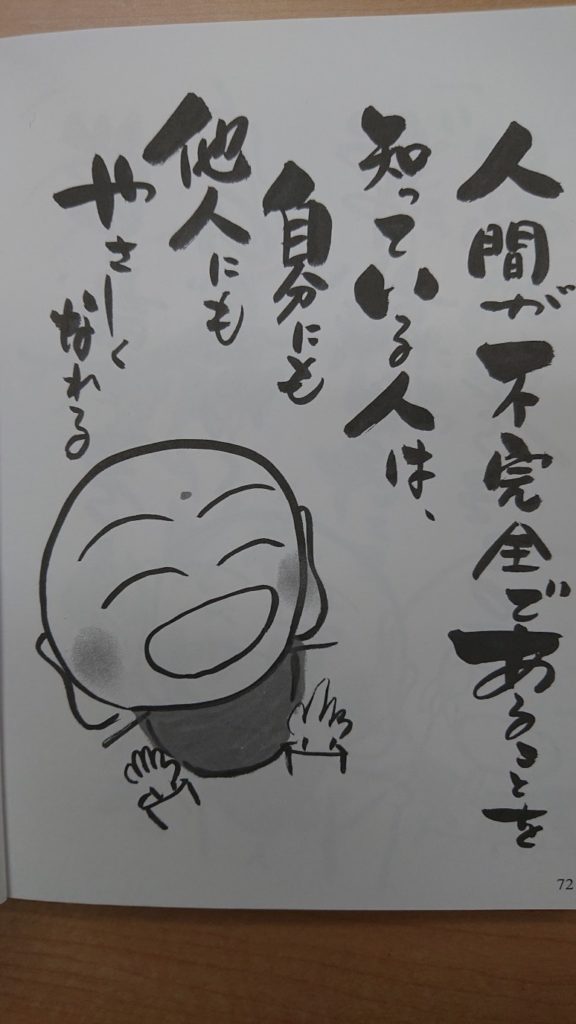 人間が不完全であることを
知っている人は、
自分にも
他人にも
やさしく
なれる
72